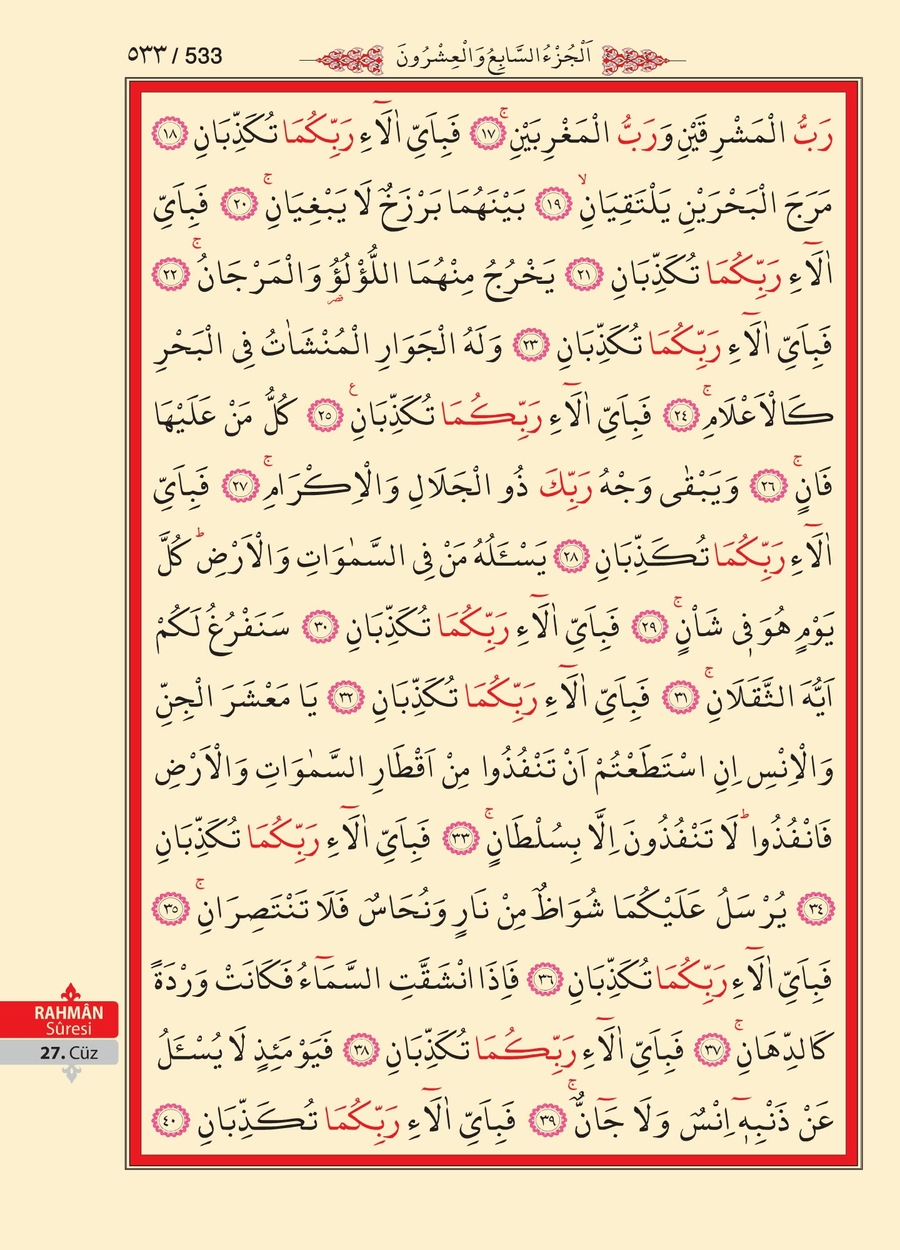 ٥٣٣ / 533
اَلْجُزْءُ السَّابِعُ وَالْعِشْرُونَ
رَبُّ الْمَشْرِقَيْنِ وَرَبُّ الْمَغْرِبَيْنِۚ ﴿١٧﴾ فَبِاَيِّ اٰلَٓاءِ رَبِّكُمَا تُكَذِّبَانِ ﴿١٨﴾
مَرَجَ الْبَحْرَيْنِ يَلْتَقِيَانِۙ ﴿١٩﴾ بَيْنَهُمَا بَرْزَخٌ لَا يَبْغِيَانِۚ ﴿٢٠﴾ فَبِاَيِّ
اٰلَٓاءِ رَبِّكُمَا تُكَذِّبَانِ ﴿٢١﴾ يَخْرُجُ مِنْهُمَا اللُّؤْلُؤُ۬ وَالْمَرْجَانُۚ ﴿٢٢﴾
فَبِاَيِّ اٰلَٓاءِ رَبِّكُمَا تُكَذِّبَانِ ﴿٢٣﴾ وَلَهُ الْجَوَارِ الْمُنْشَاٰتُ فِى الْبَحْرِ
كَالْاَعْلَامِۚ ﴿٢٤﴾ فَبِاَيِّ اٰلَٓاءِ رَبِّكُمَا تُكَذِّبَانِ۟ ﴿٢٥﴾ كُلُّ مَنْ عَلَيْهَا
فَانٍۚ ﴿٢٦﴾ وَيَبْقٰى وَجْهُ رَبِّكَ ذُو الْجَلَالِ وَالْاِكْرَامِۚ ﴿٢٧﴾ فَبِاَيِّ
اٰلَٓاءِ رَبِّكُمَا تُكَذِّبَانِ ﴿٢٨﴾ يَسْـَٔلُهُ مَنْ فِى السَّمٰوَاتِ وَالْاَرْضِۜ كُلَّ
يَوْمٍ هُوَ فٖى شَاْنٍۚ ﴿٢٩﴾ فَبِاَيِّ اٰلَٓاءِ رَبِّكُمَا تُكَذِّبَانِ ﴿٣٠﴾ سَنَفْرُغُ لَكُمْ
اَيُّهَ الثَّقَلَانِۚ ﴿٣١﴾ فَبِاَيِّ اٰلَٓاءِ رَبِّكُمَا تُكَذِّبَانِ ﴿٣٢﴾ يَا مَعْشَرَ الْجِنِّ
وَالْاِنْسِ اِنِ اسْتَطَعْتُمْ اَنْ تَنْفُذُوا مِنْ اَقْطَارِ السَّمٰوَاتِ وَالْاَرْضِ
فَانْفُذُواۜ لَا تَنْفُذُونَ اِلَّا بِسُلْطَانٍۚ ﴿٣٣﴾ فَبِاَيِّ اٰلَٓاءِ رَبِّكُمَا تُكَذِّبَانِ
﴿٣٤﴾ يُرْسَلُ عَلَيْكُمَا شُوَاظٌ مِنْ نَارٍ وَنُحَاسٌ فَلَا تَنْتَصِرَانِۚ ﴿٣٥﴾
فَبِاَيِّ اٰلَٓاءِ رَبِّكُمَا تُكَذِّبَانِ ﴿٣٦﴾ فَاِذَا انْشَقَّتِ السَّمَٓاءُ فَكَانَتْ وَرْدَةً
كَالدِّهَانِۚ ﴿٣٧﴾ فَبِاَيِّ اٰلَٓاءِ رَبِّكُمَا تُكَذِّبَانِ ﴿٣٨﴾ فَيَوْمَئِذٍ لَا يُسْـَٔلُ
عَنْ ذَنْبِهٖٓ اِنْسٌ وَلَا جَٓانٌّۚ ﴿٣٩﴾ فَبِاَيِّ اٰلَٓاءِ رَبِّكُمَا تُكَذِّبَانِ ﴿٤٠﴾
RAHMÂN
Sûresi
27. Cüz